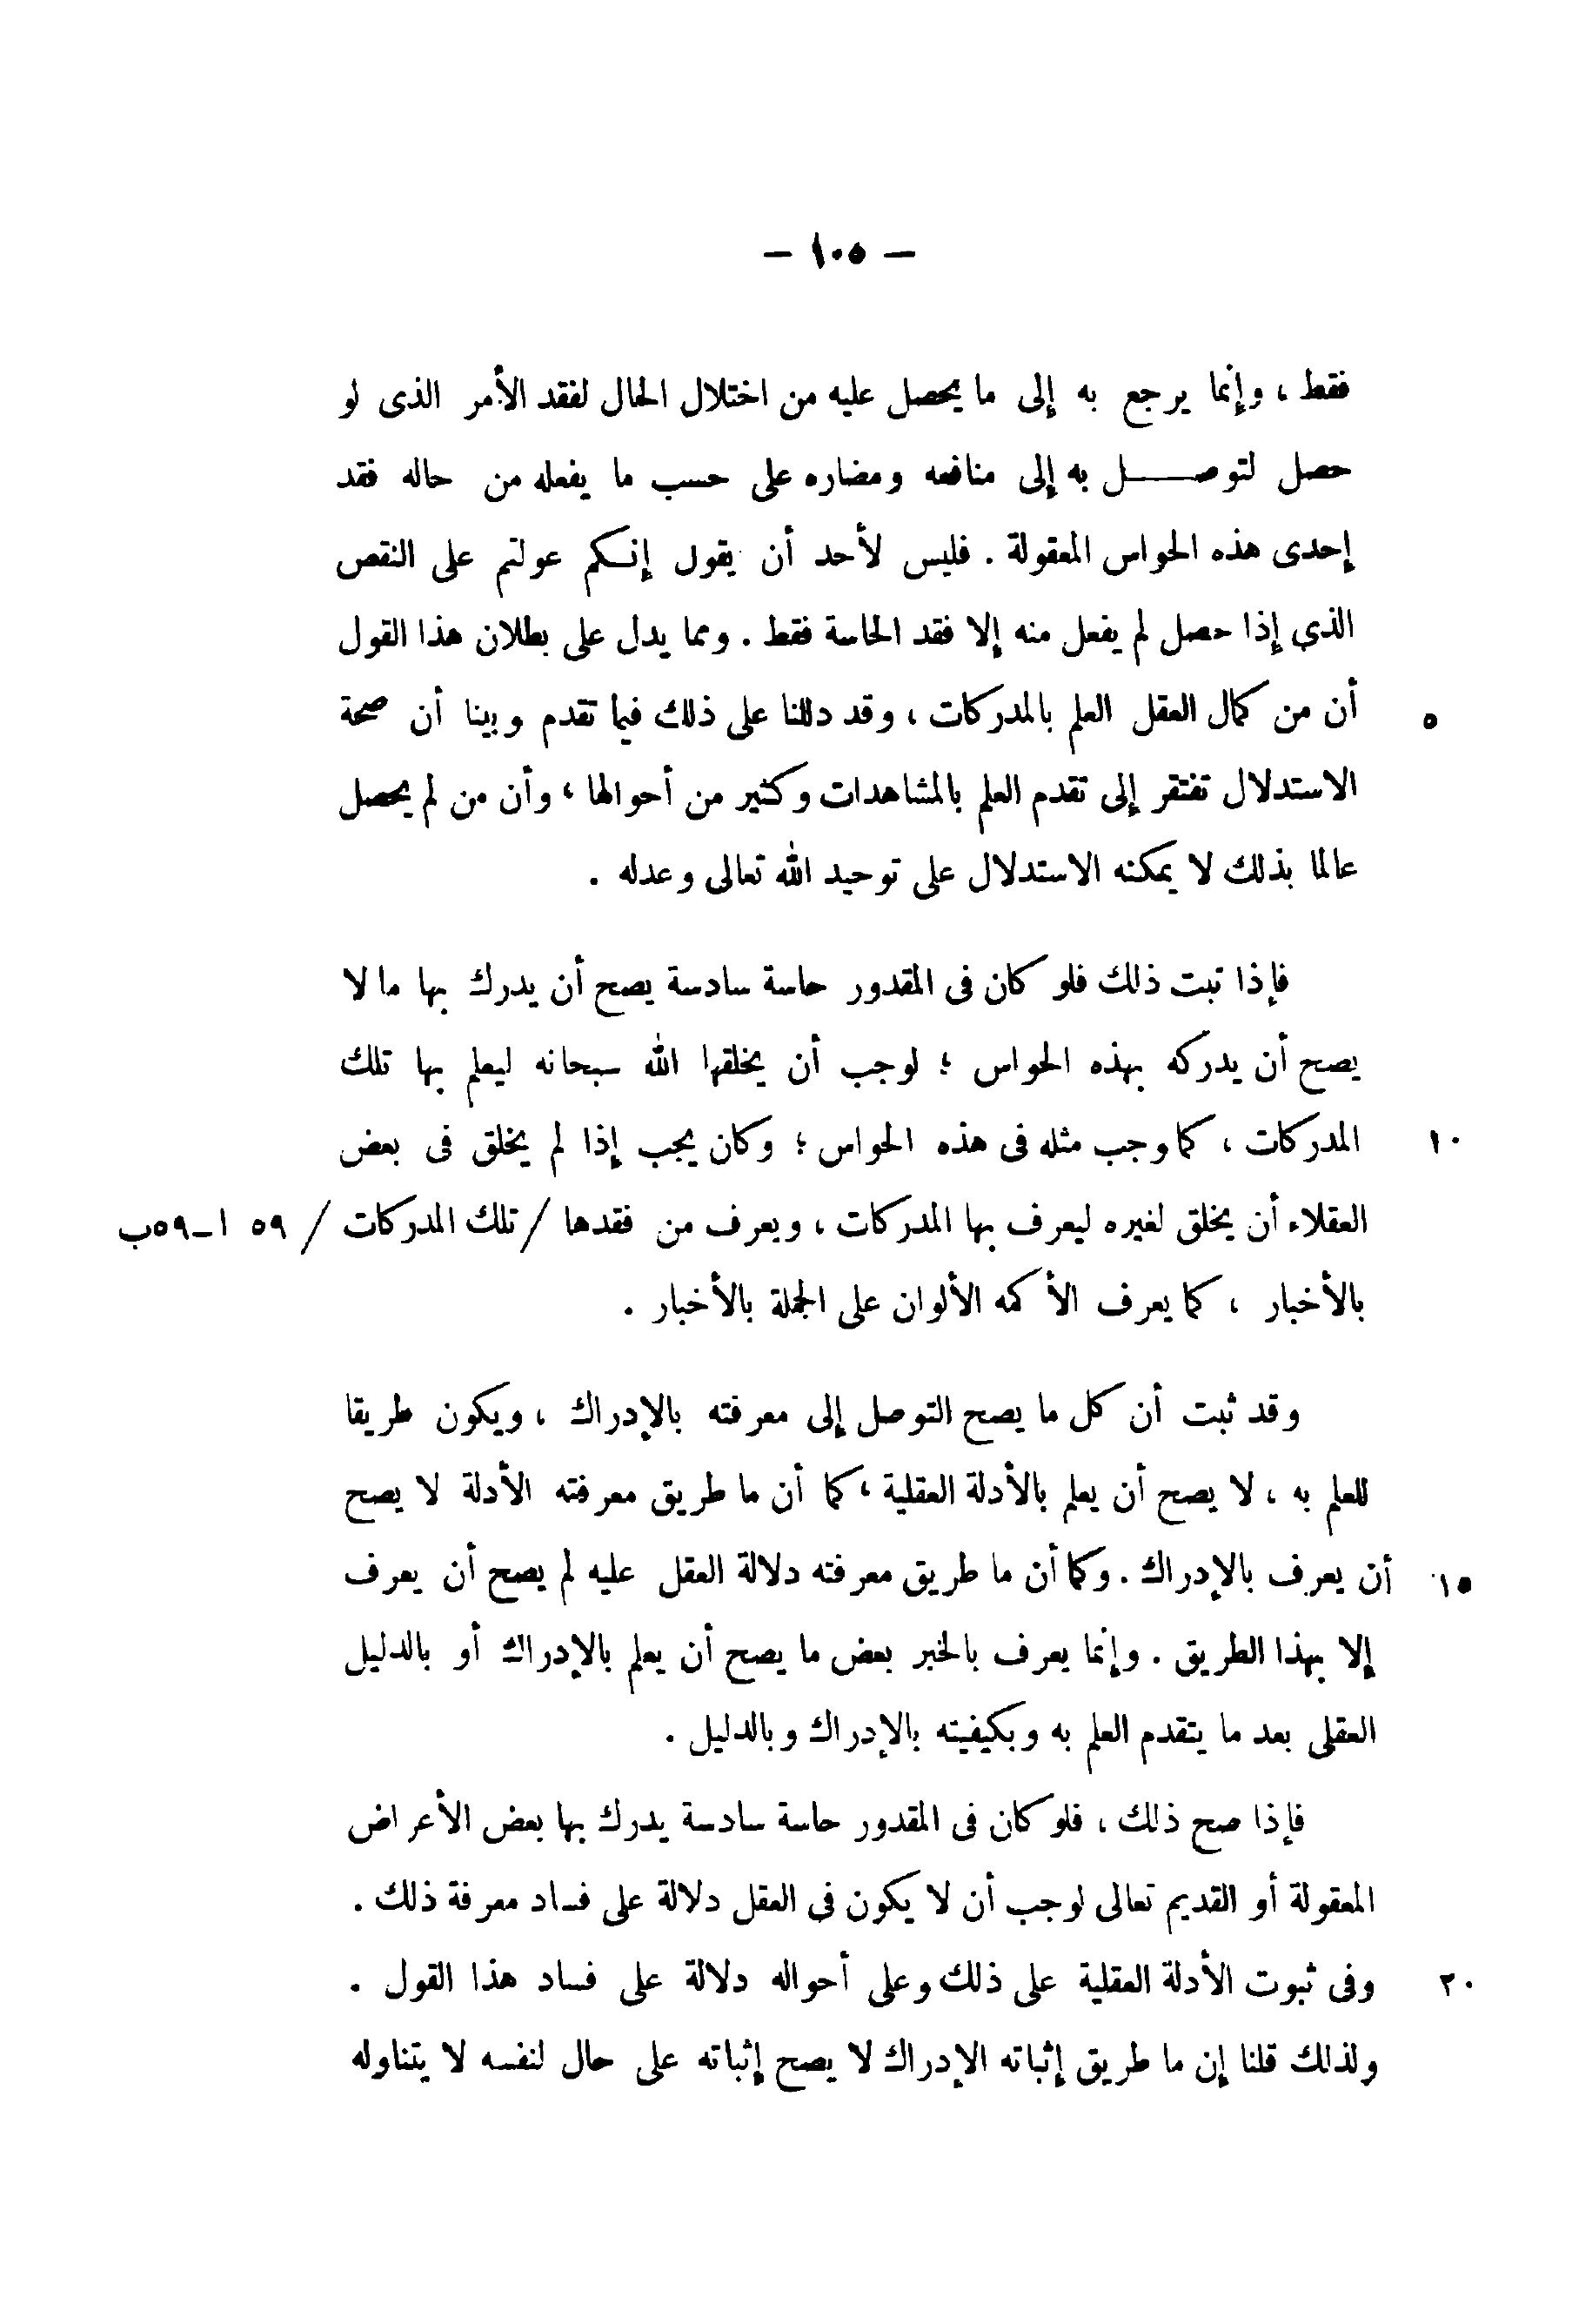 — ١٠٥ —
فقط ، وإنما يرجع به إلى ما يحصل عليه من اختلال الحال لفقد الأمر الذى لو
حصل لتوصـــل به إلى منافعه ومضاره على حسب ما يفعله من حاله فقد
إحدى هذه الحواس المعقولة . فليس لأحد أن يقول إنـكم عولتم على النقص
الذى إذا حصل لم يفعل منه إلا فقد الحاسة فقط . ومما يدل على بطلان هذا القول
٥ أن من كمال العقل العلم بالمدركات ، وقد دللنا على ذلك فيما تقدم وبينا أن صحة
الاستدلال تفتقر إلى تقدم العلم بالمشاهدات وكثير من أحوالها ، وأن من لم يحصل
عالما بذلك لا يمكنه الاستدلال على توحيد الله تعالى وعدله .
فإذا تبت ذلك فلو كان فى المقدور حاسة سادسة يصح أن يدرك بها ما لا
يصح أن يدركه بهذه الحواس ؛ لوجب أن يخلقها الله سبحانه ليعلم بها تلك
١٠ المدركات ، كما وجب مثله فى هذه الحواس ؛ وكان يجب إذا لم يخلق فى بعض
العقلاء أن يخلق لغيره ليعرف بها المدركات ، ويعرف من فقدها / تلك المدركات / ٥٩ ا ــ ٥٩ب
بالأخبار ، كما يعرف الأكمه الألوان على الجملة بالأخبار .
وقد ثبت أن كل ما يصح التوصل إلى معرفته بالإدراك ، ويكون طريقا
للعلم به ، لا يصح أن يعلم بالأدلة العقلية ، كما أن ما طريق معرفته الأدلة لا يصح
١٥ أن يعرف بالإدراك . وكما أن ما طريق معرفته دلالة العقل عليه لم يصح أن يعرف
إلا بهذا الطريق . وإنما يعرف بالخبر بعض ما يصح أن يعلم بالإدراك أو بالدليل
العقلى بعد ما يتقدم العلم به وبكيفيته بالإدراك وبالدليل .
فإذا صح ذلك ، فلو كان فى المقدور حاسة سادسة يدرك بها بعض الأعراض
المعقولة أو القديم تعالى لوجب أن لا يكون فى العقل دلالة على فساد معرفة ذلك .
٢٠ وفى ثبوت الأدلة العقلية على ذلك وعلى أحواله دلالة على فساد هذا القول .
ولذلك قلنا إن ما طريق إثباته الإدراك لا يصح إثباته على حال لنفسه لا يتناوله